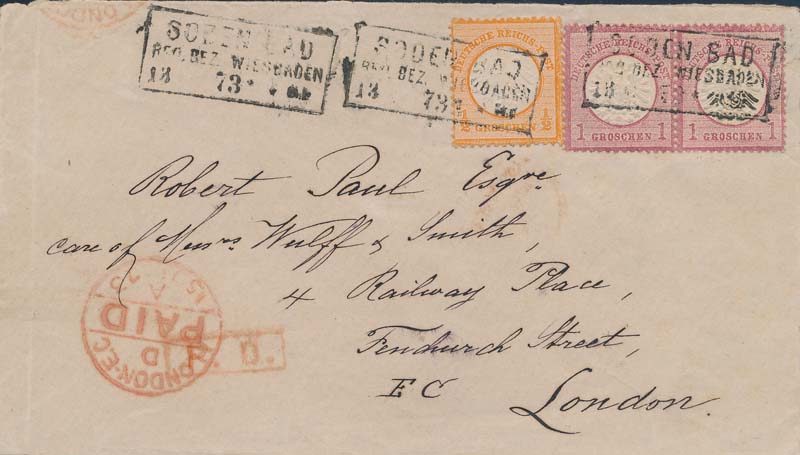 SODEN BAD
REG. BEZ. WIESBADEN
13 73
SODEN BAD
REG. BEZ. WIESBADEN
13 73
SODEN BAD
REG. BEZ. WIESBADEN
13
DEUTSCHE REICHS-POST
1/2 GROSCHEN 1/2
DEUTSCHE REICHS-POST
1 GROSCHEN 1
DEUTSCHE REICHS-POST
1 GROSCHEN 1
Robert Paul Esqre.
care of Messrs Wulff & Smith,
4 Railway Place,
Fenchurch Street,
EC London.
LONDON·E.C
PAID
D
A
15
P. D.